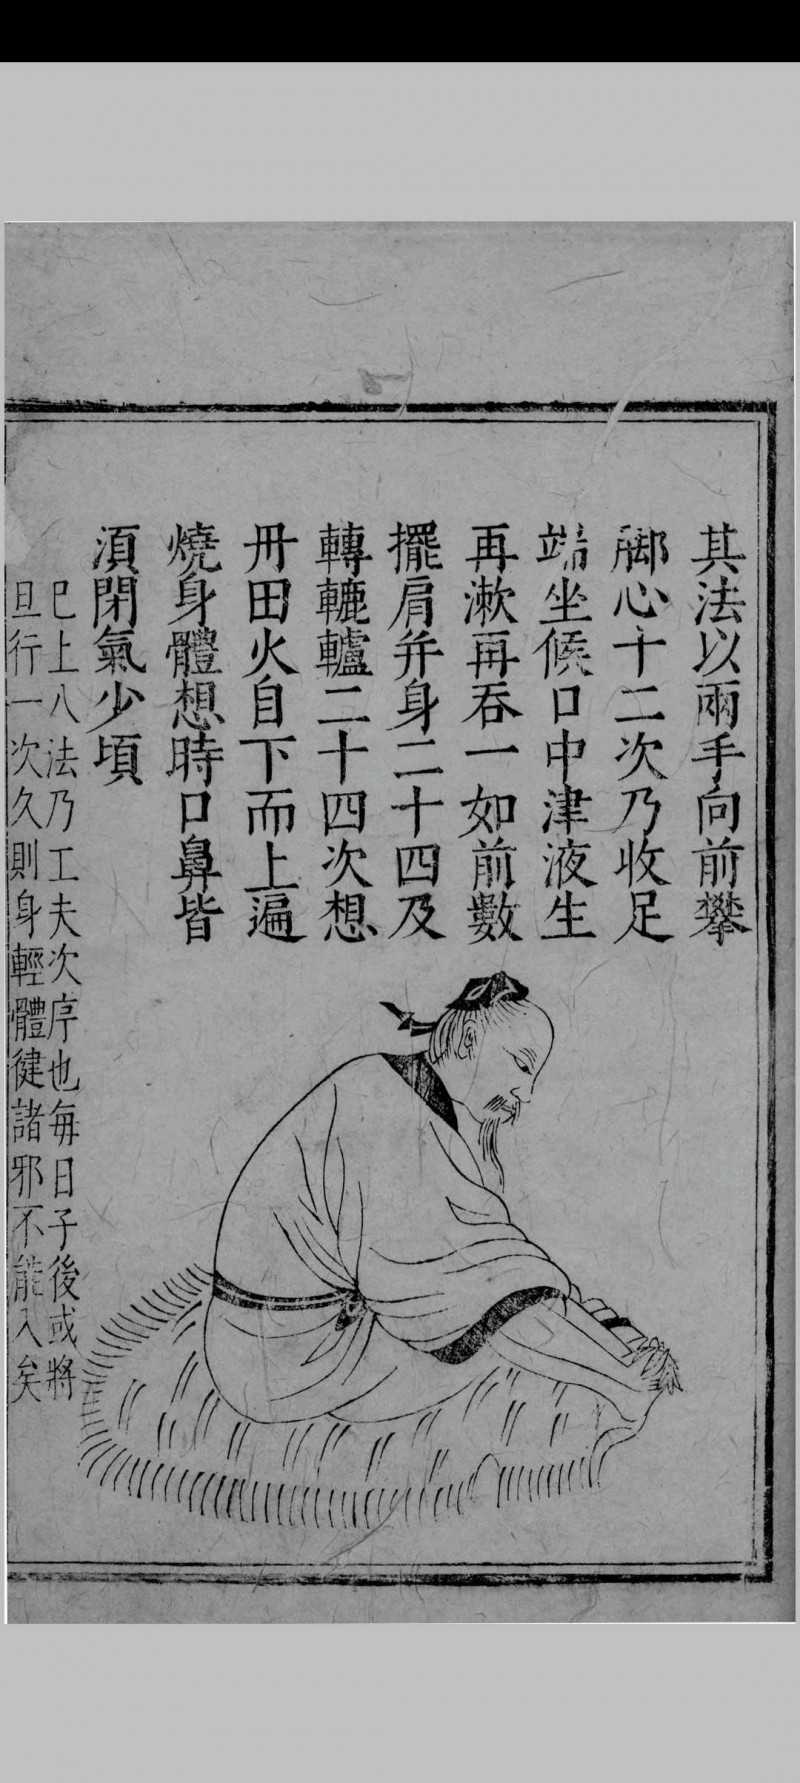 其法以兩手向前攀
脚心十二次乃收足
端坐候口中津液生
再漱再吞一如前數
擺肩并身二十四及
轉轆轤二十四次想
丹田火自下而上遍
燒身體想時口鼻皆
湏閉氣少頃
巳上八法乃工夫次序也每日子後或將
旦行一次久則身輕體健諸邪不能入矣